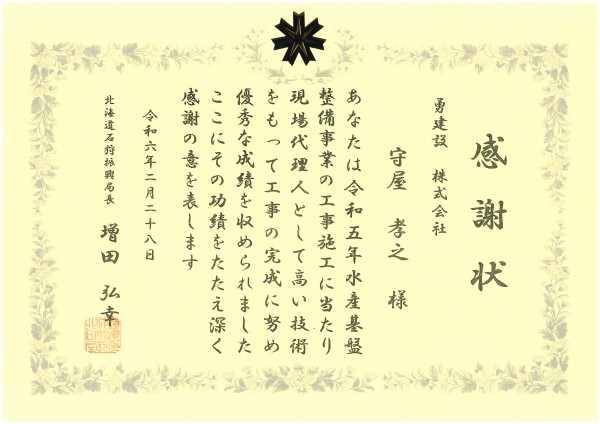 感謝状
勇建設 株式会社
守屋 孝之 様
あなたは令和五年水産基盤
整備事業の工事施工に当たり
現場代理人として高い技術
をもって工事の完成に努め
優秀な成績を収められました
ここにその功績をたたえ深く
感謝の意を表します
令和六年二月二十八日
北海道石狩振興局長
増田 弘幸